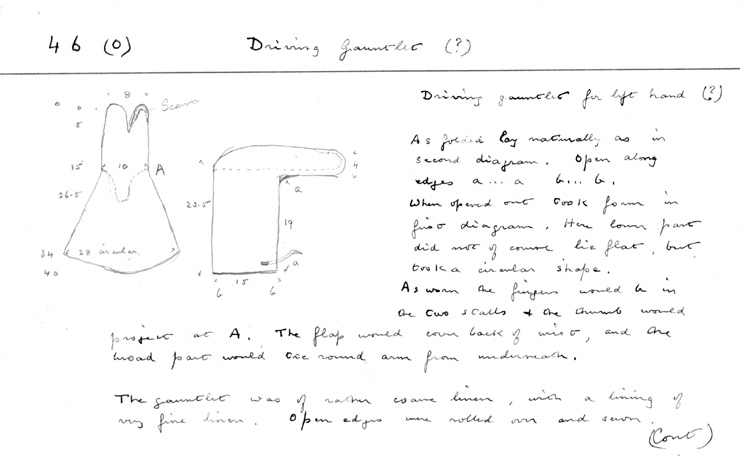 46 (0)
Driving Gauntlet (?)
8
Seam
0 0 0
5
15
10
A
26.5
34
28 circular
40
23.5
4
a
19
a
15
b b
Driving gauntlet for left hand (?)
As folded lay naturally as in
second diagram. Open along
edges a...a b...b.
When opened out took form in
first diagram. Here lower part
did not of course lie flat, but
took a circular shape.
As worn the fingers would be in
the two stalls & the thumb would
project at A. The flap would cover back of wrist, and the
broad part would tie round arm from underneath.
The gauntlet was of rather coarse linen, with a lining of
very fine linen. Open edges were rolled over and sewn.
(Cont)